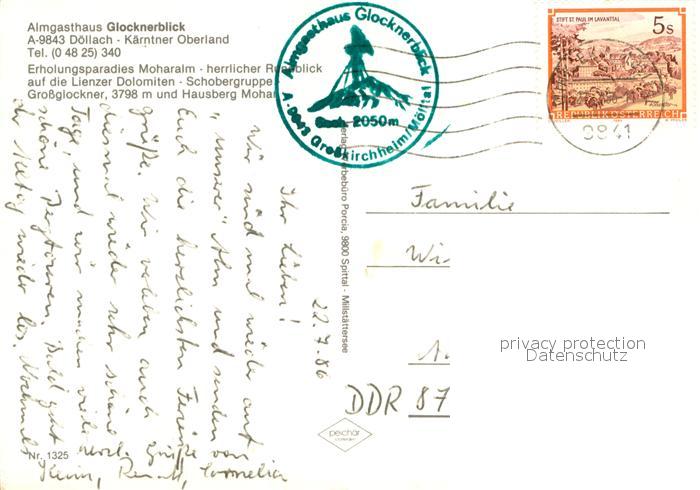 Almgasthaus Glocknerblick
A-9843 Döllach - Kärntner Oberland
Tel. (0 48 25) 340
Erholungsparadies Moharalm - herrlicher Rundblick
auf die Lienzer Dolomiten - Schobergruppe
Großglockner, 3798 m und Hausberg Mohar
Almgasthaus Glocknerblick
Seeh. 2050m
A-9843 Großkirchheim/Mölltal
STIFT ST. PAUL IM LAVANTTAL
5s
REPUBLIK ÖSTERREICH
9841
22.7.86
Ihr Lieben!
Wir sind mal wieder auf
"unserer" Alm und senden
Euch die herzlichsten Ferien-
grüße. Wir verleben auch
diesmal wieder sehr schöne
Tage und wir machen viele
schöne Bergtouren. Bald geht
der Alltag wieder los. Nochmals
herzl. Grüße von
Cornelia
Werbebüro Porcia, 9800 Spittal - Millstättersee
Familie
Wi
DDR 87
privacy protection
Datenschutz
Nr. 1325